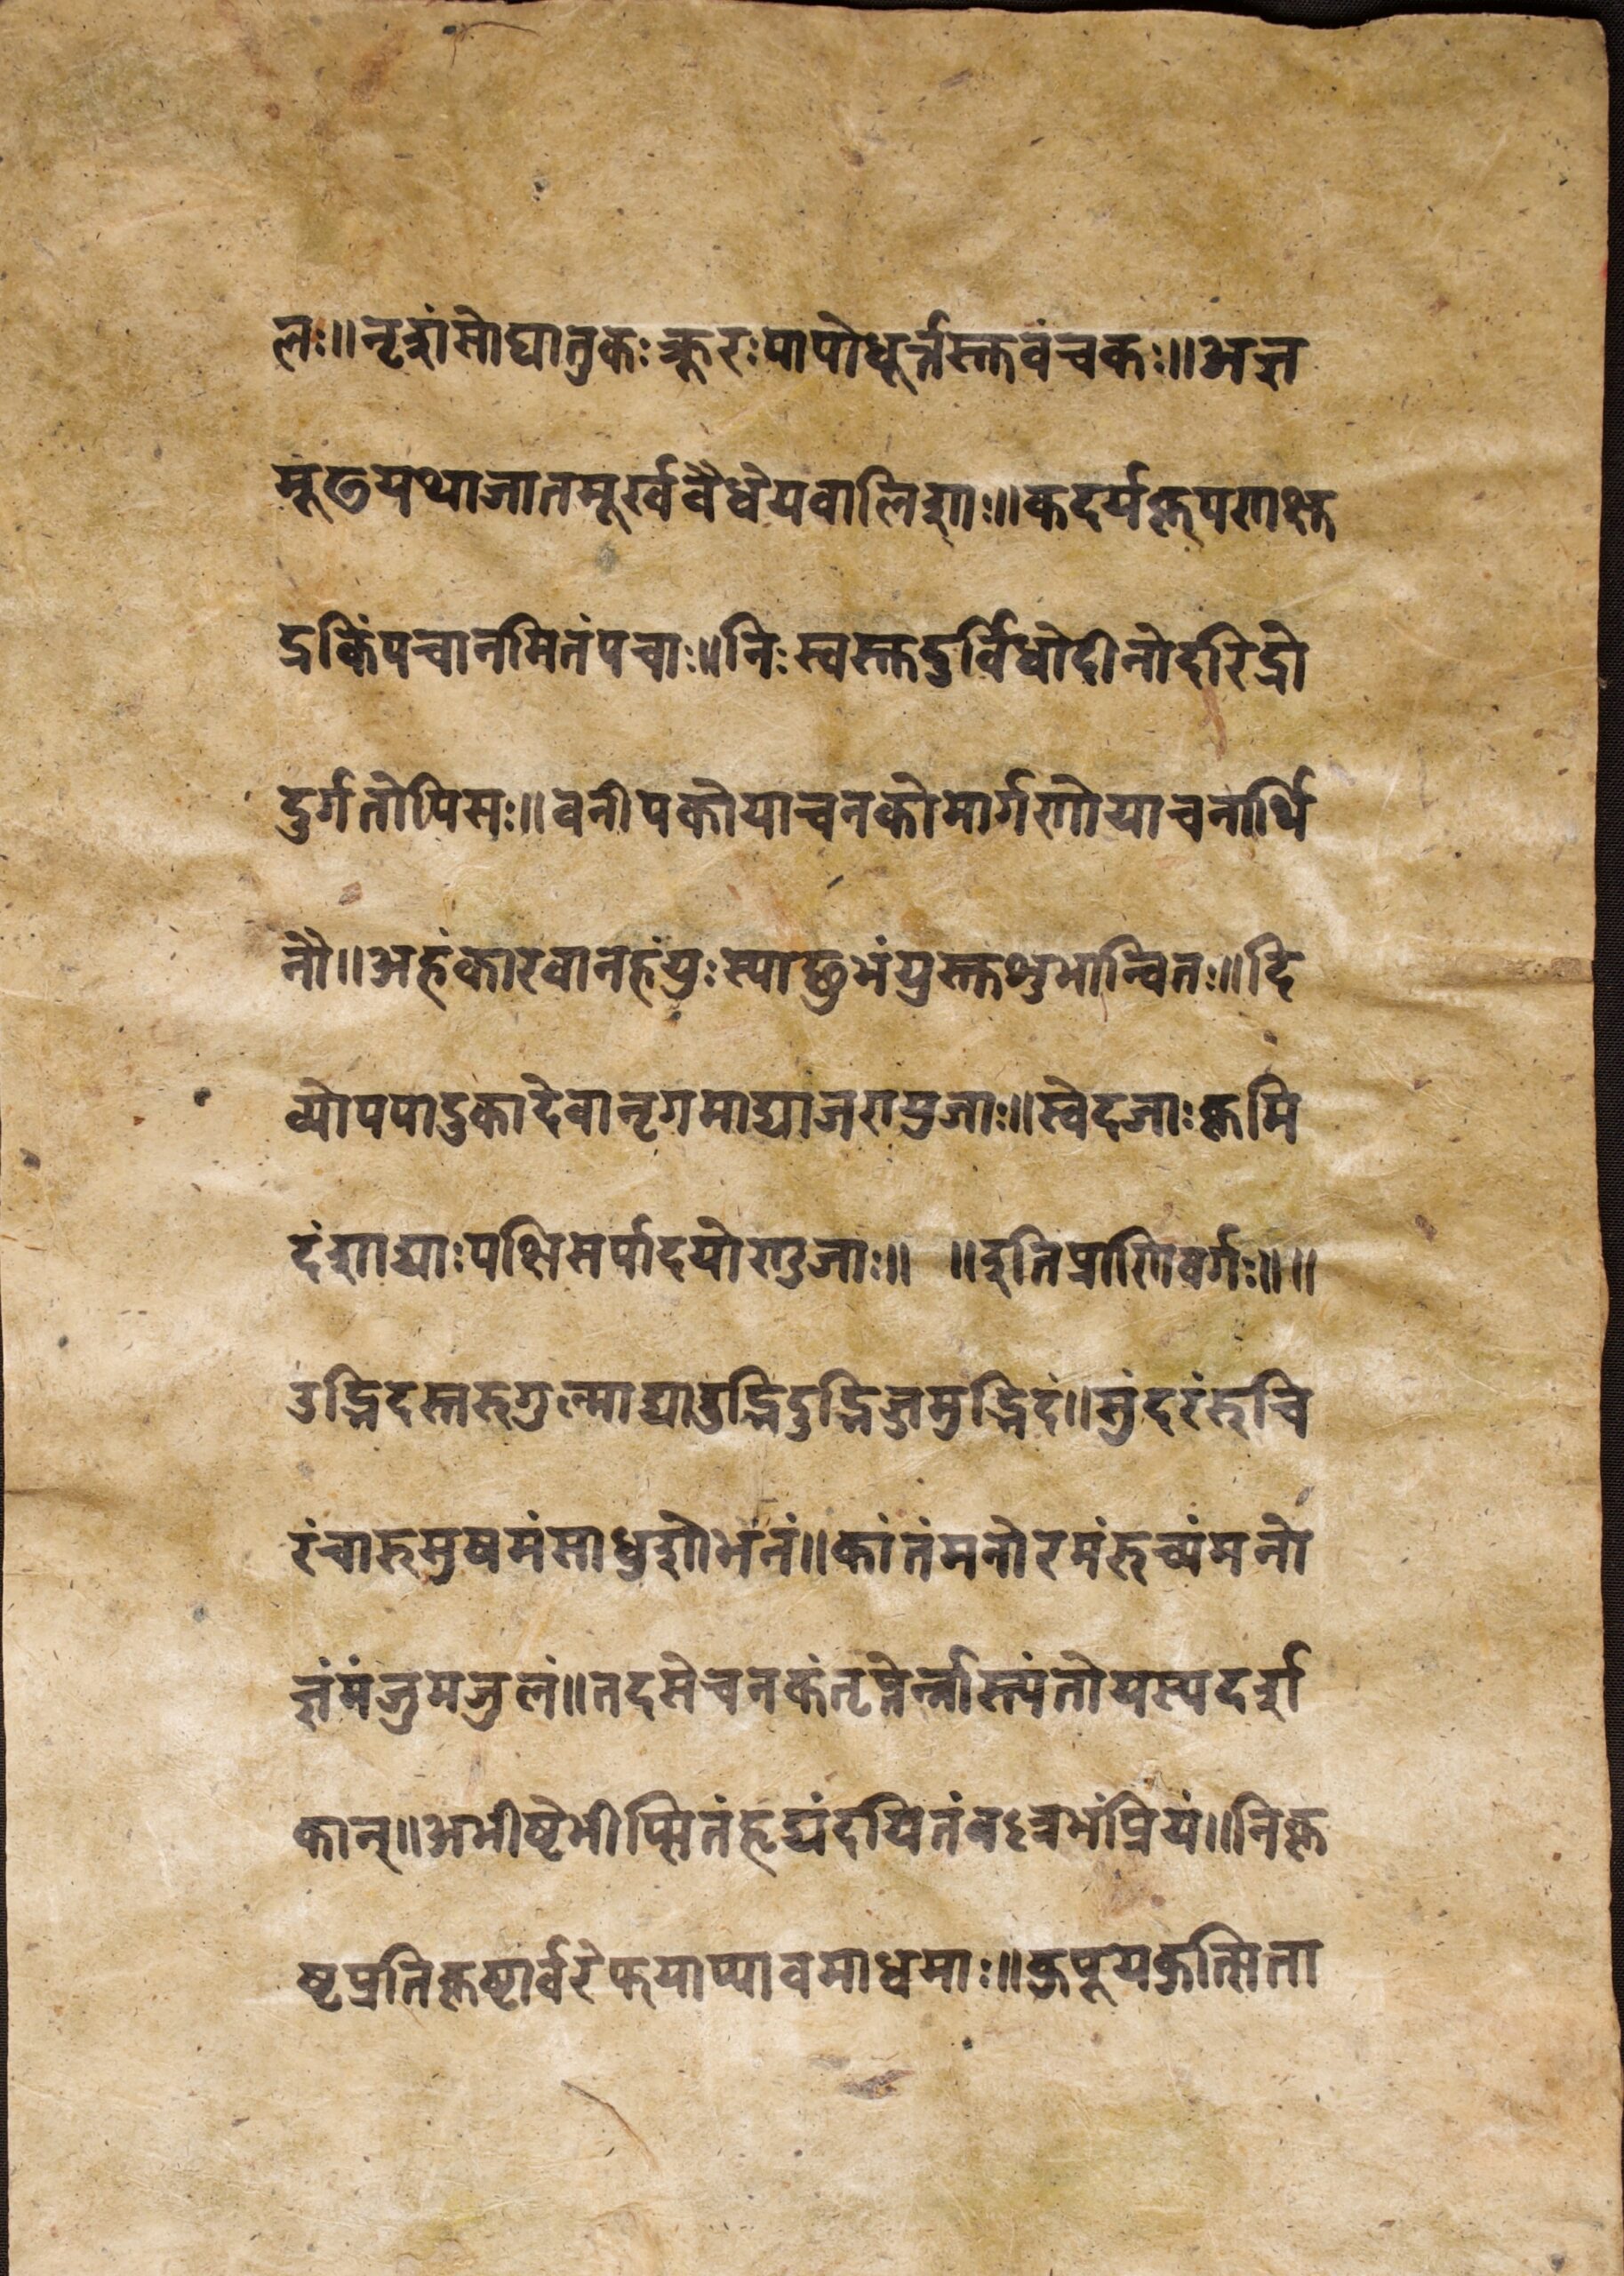 लः॥नृशंसोघातुकःक्रूरःपापोधूर्त्तस्तवंचकः॥अज्ञ
मूढयथाजातमूर्खवैधेयवालिशाः॥कदर्यकृपणक्षु
द्रकिंपचानमितंपचाः॥निःस्वस्तदुर्विधोदीनोदरिद्रो
दुर्गतोपिसः॥वनीपकोयाचनकोमार्गणोयाचनार्थि
नौ॥अहंकारवानहंयुःस्याछुभंयुस्तशुभान्वितः॥दि
व्योपपादुकादेवानृगमाद्याजरायुजाः॥स्वेदजाःकृमि
दंशाद्याःपक्षिसर्पादयोण्डजाः॥ ॥इतिप्राणिवर्गः॥॥
उद्भिदस्तरुगुल्माद्याउद्भिदुद्भिज्जमुद्भिदं॥सुंदरंरुचि
रंचारुसुषमंसाधुशोभनं॥कांतंमनोरमंरुच्यंमनो
ज्ञंमंजुमजुलं॥तदसेचनकंतृप्तेर्न्नास्त्यंतोयस्यदर्श
कान्॥अभीष्टेभीप्सितंहृद्यंदयितंवल्लभंप्रियं॥निकृ
ष्टप्रतिकृष्टार्वरेफयाप्यावमाधमाः॥कुपूयकुत्सिता